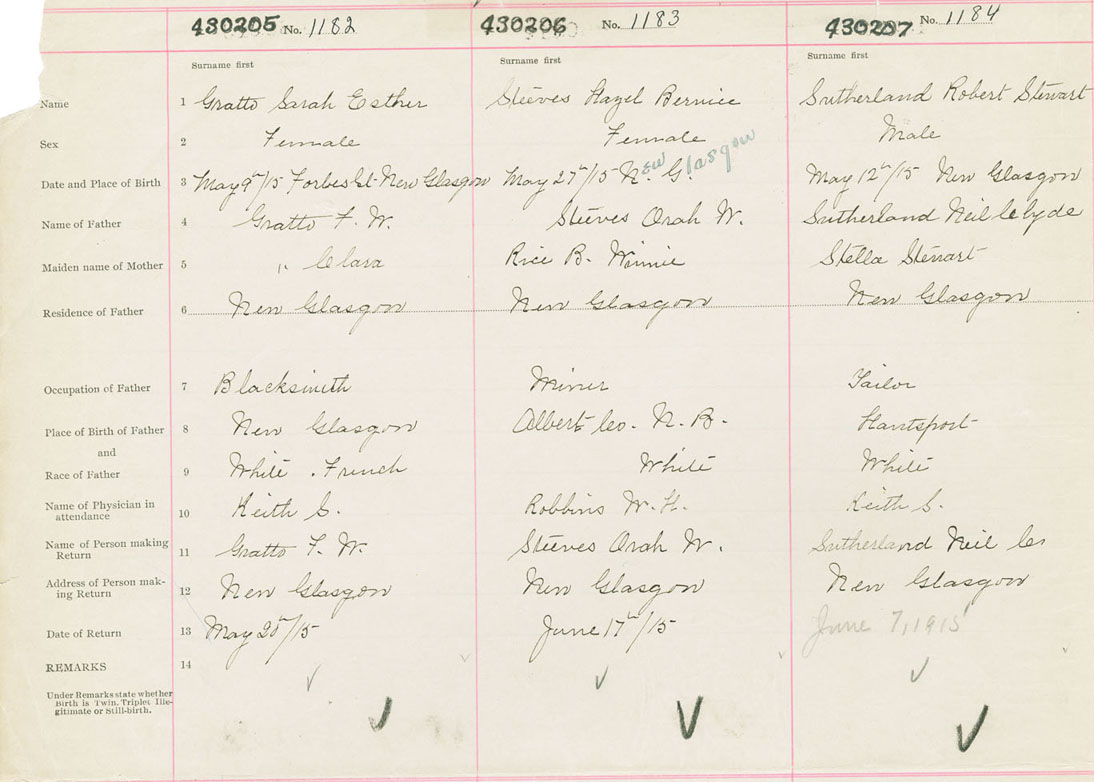 430205 No. 1182 430206 No. 1183 430207 No. 1184
Surname first Surname first Surname first
Name 1 Gratto Sarah Esther Steeves Hazel Bernice Sutherland Robert Stewart
Sex 2 Female Female Male
Date and Place of Birth 3 May 9th/15 Forbes St. New Glasgow May 27th/15 New Glasgow May 12th/15 New Glasgow
Name of Father 4 Gratto F. W. Steeves Orah W. Sutherland Neil Clyde
Maiden name of Mother 5 " Clara Rice B. Winnie Stella Stewart
Residence of Father 6 New Glasgow New Glasgow New Glasgow
Occupation of Father 7 Blacksmith Miner Tailor
Place of Birth of Father 8 New Glasgow Albert Co. N. B. Hantsport
and
Race of Father 9 White . French White White
Name of Physician in
attendance 10 Keith S. Robbins W. H. Keith S.
Name of Person making
Return 11 Gratto F. W. Steeves Orah W. Sutherland Neil C
Address of Person mak-
ing Return 12 New Glasgow New Glasgow New Glasgow
Date of Return 13 May 20th/15 June 17th/15 June 7, 1915
REMARKS 14
Under Remarks state whether
Birth is Twin. Triplet Ille-
gitimate or Still-birth.